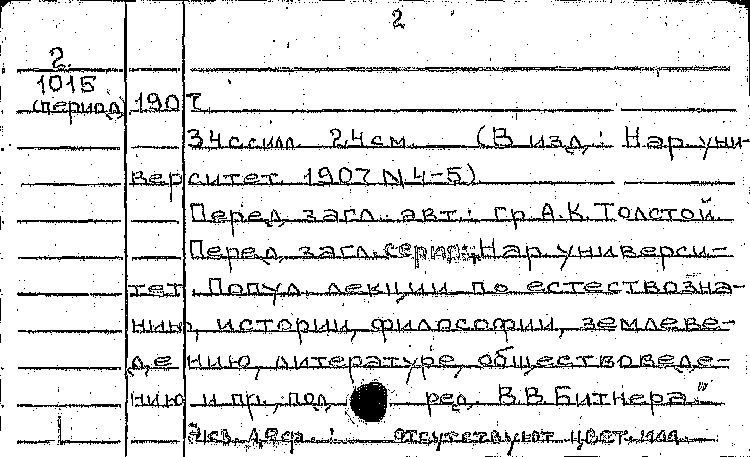 2
2.
1015
(период) 1907
34 с с илл. 24 см. (В изд.: Нар. уни-
верситет. 1907 N 4-5)
Перед загл. авт.: гр. А.К. Толстой.
Перед загл. серия: Нар. университ-
тет. Попул. лекции по естествозна-
нию, истории, философии, землеве-
дению, литературе, обществоведе-
нию и пр., под ред. В.В. Битнера."
деф.: отсутствуют цвет. илл.